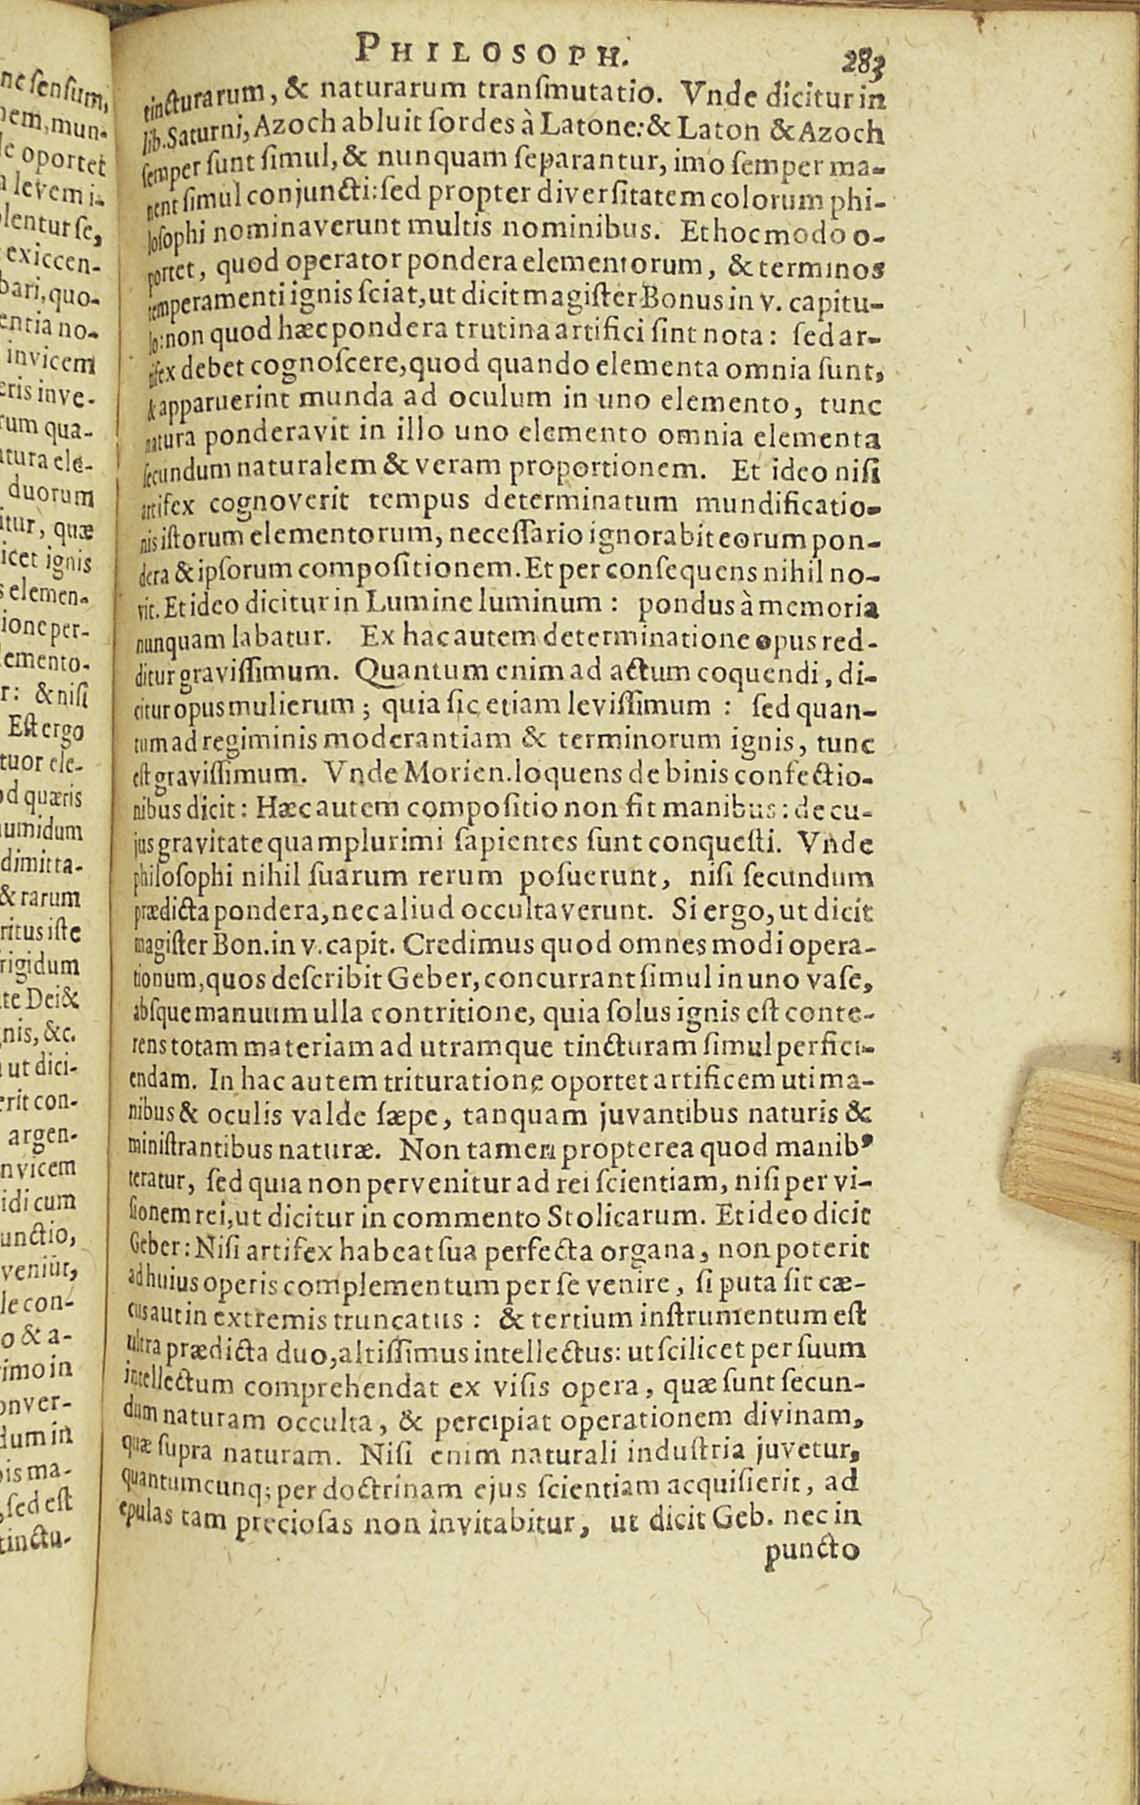 PHILOSOPH.
283
tincturarum, & naturarum transmutatio. Vnde dicitur in
lib. Saturni, Azoch abluit sordes à Latone: & Laton & Azoch
semper sunt simul, & nunquam separantur, imo semper ma-
nent simul conjuncti: sed propter diversitatem colorum phi-
losophi nominaverunt multis nominibus. Et hoc modo o-
portet, quod operator pondera elementorum, & terminos
temperamenti ignis sciat, ut dicit magister Bonus in v. capitu-
lo: non quod hæc pondera trutina artifici sint nota: sed ar-
tifex debet cognoscere, quod quando elementa omnia sunt,
& apparuerint munda ad oculum in uno elemento, tunc
natura ponderavit in illo uno elemento omnia elementa
secundum naturalem & veram proportionem. Et ideo nisi
artifex cognoverit tempus determinatum mundificatio-
nis istorum elementorum, necessario ignorabit eorum pon-
dera & ipsorum compositionem. Et per consequens nihil no-
vit. Et ideo dicitur in Lumine luminum: pondus à memoria
nunquam labatur. Ex hac autem determinatione opus red-
ditur gravissimum. Quantum enim ad actum coquendi, di-
citur opus mulierum; quia sic etiam levissimum: sed quan-
tum ad regiminis moderantiam & terminorum ignis, tunc
est gravissimum. Vnde Morien. loquens de binis confectio-
nibus dicit: Hæc autem compositio non fit manibus: de cu-
jus gravitate quamplurimi sapientes sunt conquesti. Vnde
philosophi nihil suarum rerum posuerunt, nisi secundum
prædicta pondera, nec aliud occultaverunt. Si ergo, ut dicit
magister Bon. in v. capit. Credimus quod omnes modi opera-
tionum, quos describit Geber, concurrant simul in uno vase,
absque manuum ulla contritione, quia solus ignis est conte-
rens totam materiam ad utramque tincturam simul perfici-
endam. In hac autem trituratione oportet artificem uti ma-
nibus & oculis valde sæpe, tanquam juvantibus naturis &
ministrantibus naturæ. Non tamen propterea quod manibꝰ
teratur, sed quia non pervenitur ad rei scientiam, nisi per vi-
sionem rei, ut dicitur in commento Stolicarum. Et ideo dicit
Geber: Nisi artifex habeat sua perfecta organa, non poterit
ad huius operis complementum per se venire, si puta sit cæ-
cus aut in extremis truncatus: & tertium instrumentum est
ultra prædicta duo, altissimus intellectus: ut scilicet per suum
intellectum comprehendat ex visis opera, quæ sunt secun-
dum naturam occulta, & percipiat operationem divinam,
quæ supra naturam. Nisi enim naturali industria juvetur,
quantumcunq; per doctrinam ejus scientiam acquisierit, ad
epulas tam preciosas non invitabitur, ut dicit Geb. nec in
puncto